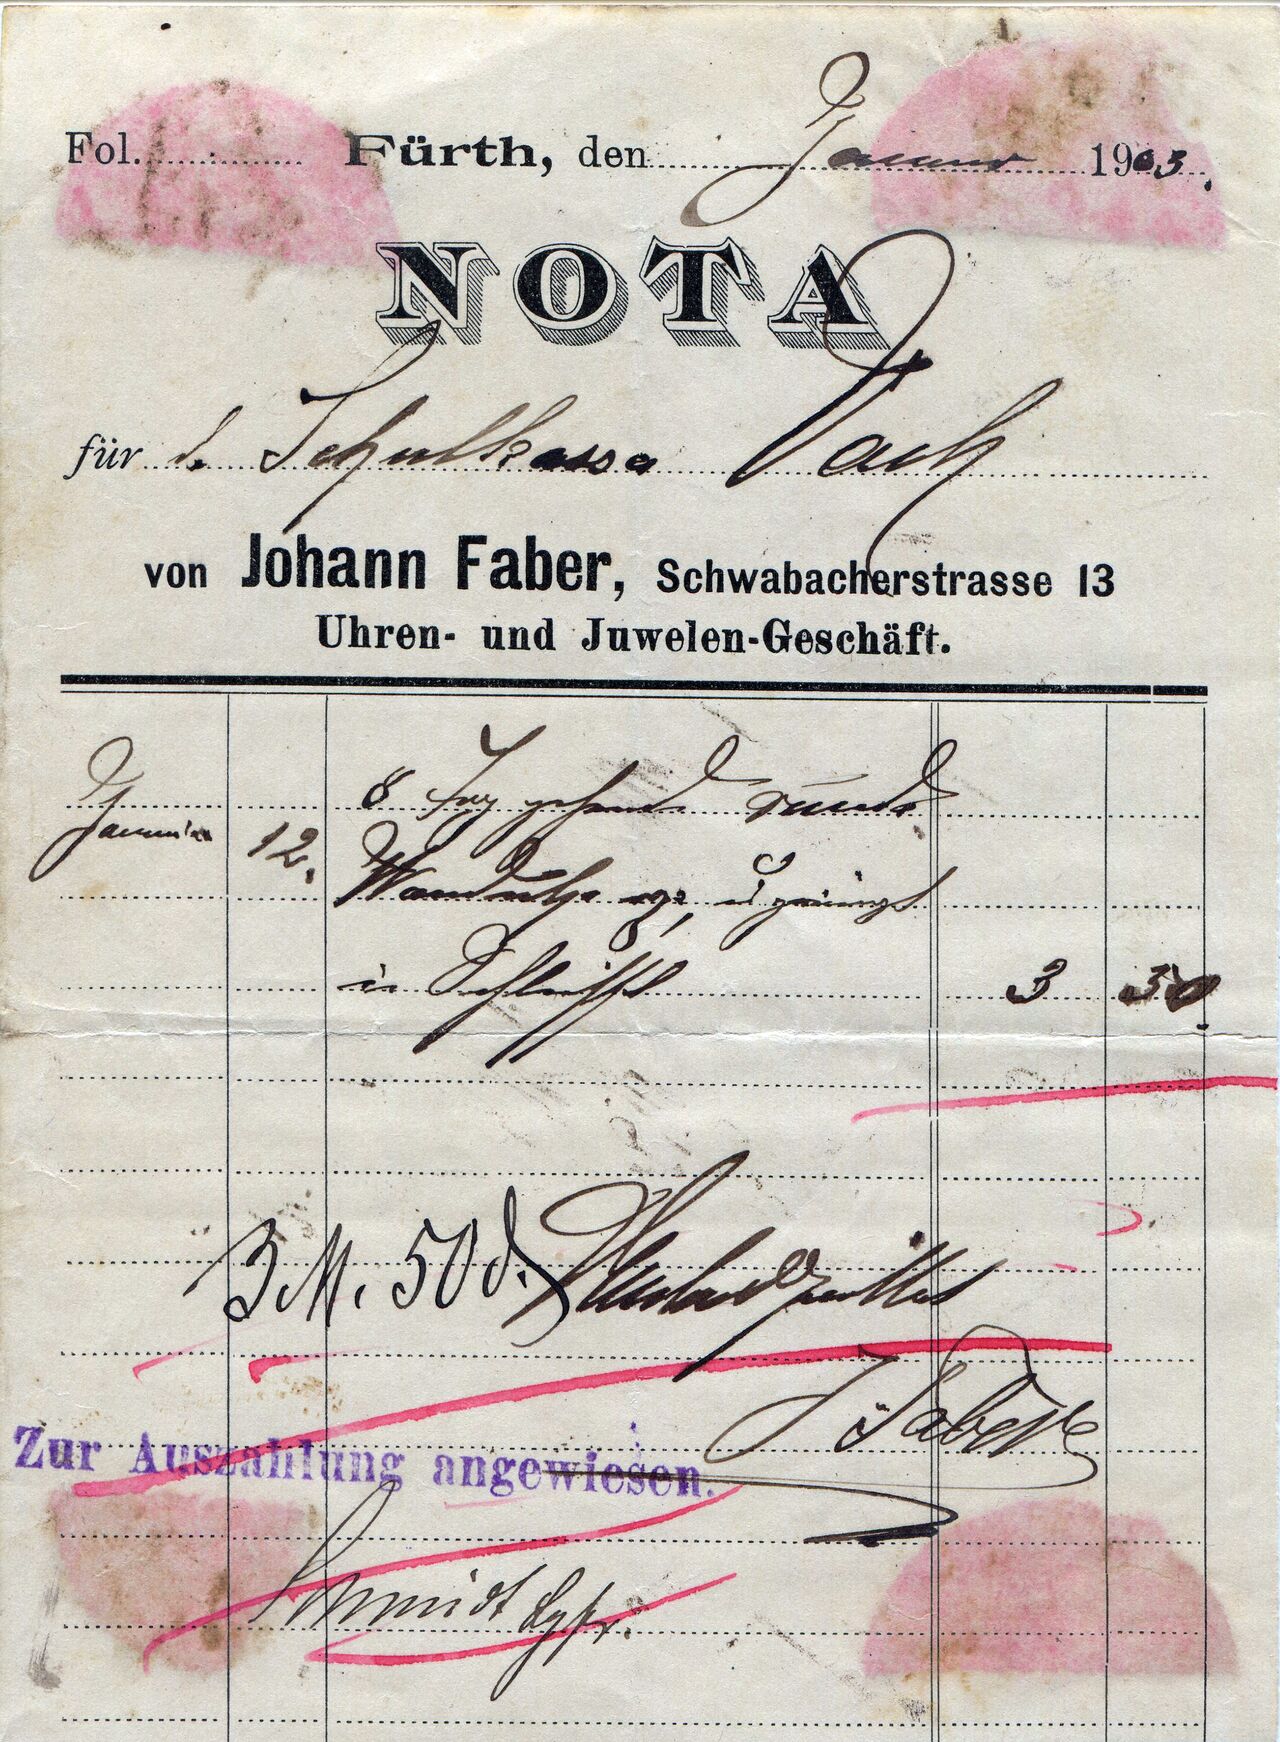 Fol. Fürth, den Januar 1903.
NOTA
für d. Schulkassa Vach
von Johann Faber, Schwabacherstrasse 13
Uhren- und Juwelen-Geschäft.
8 Tag gehende runde
Januar 12. Wanduhr u gereinigt
3 50.
3 M. 50 d. dankend quittirt
J. Faber
Zur Auszahlung angewiesen.
Schmidt